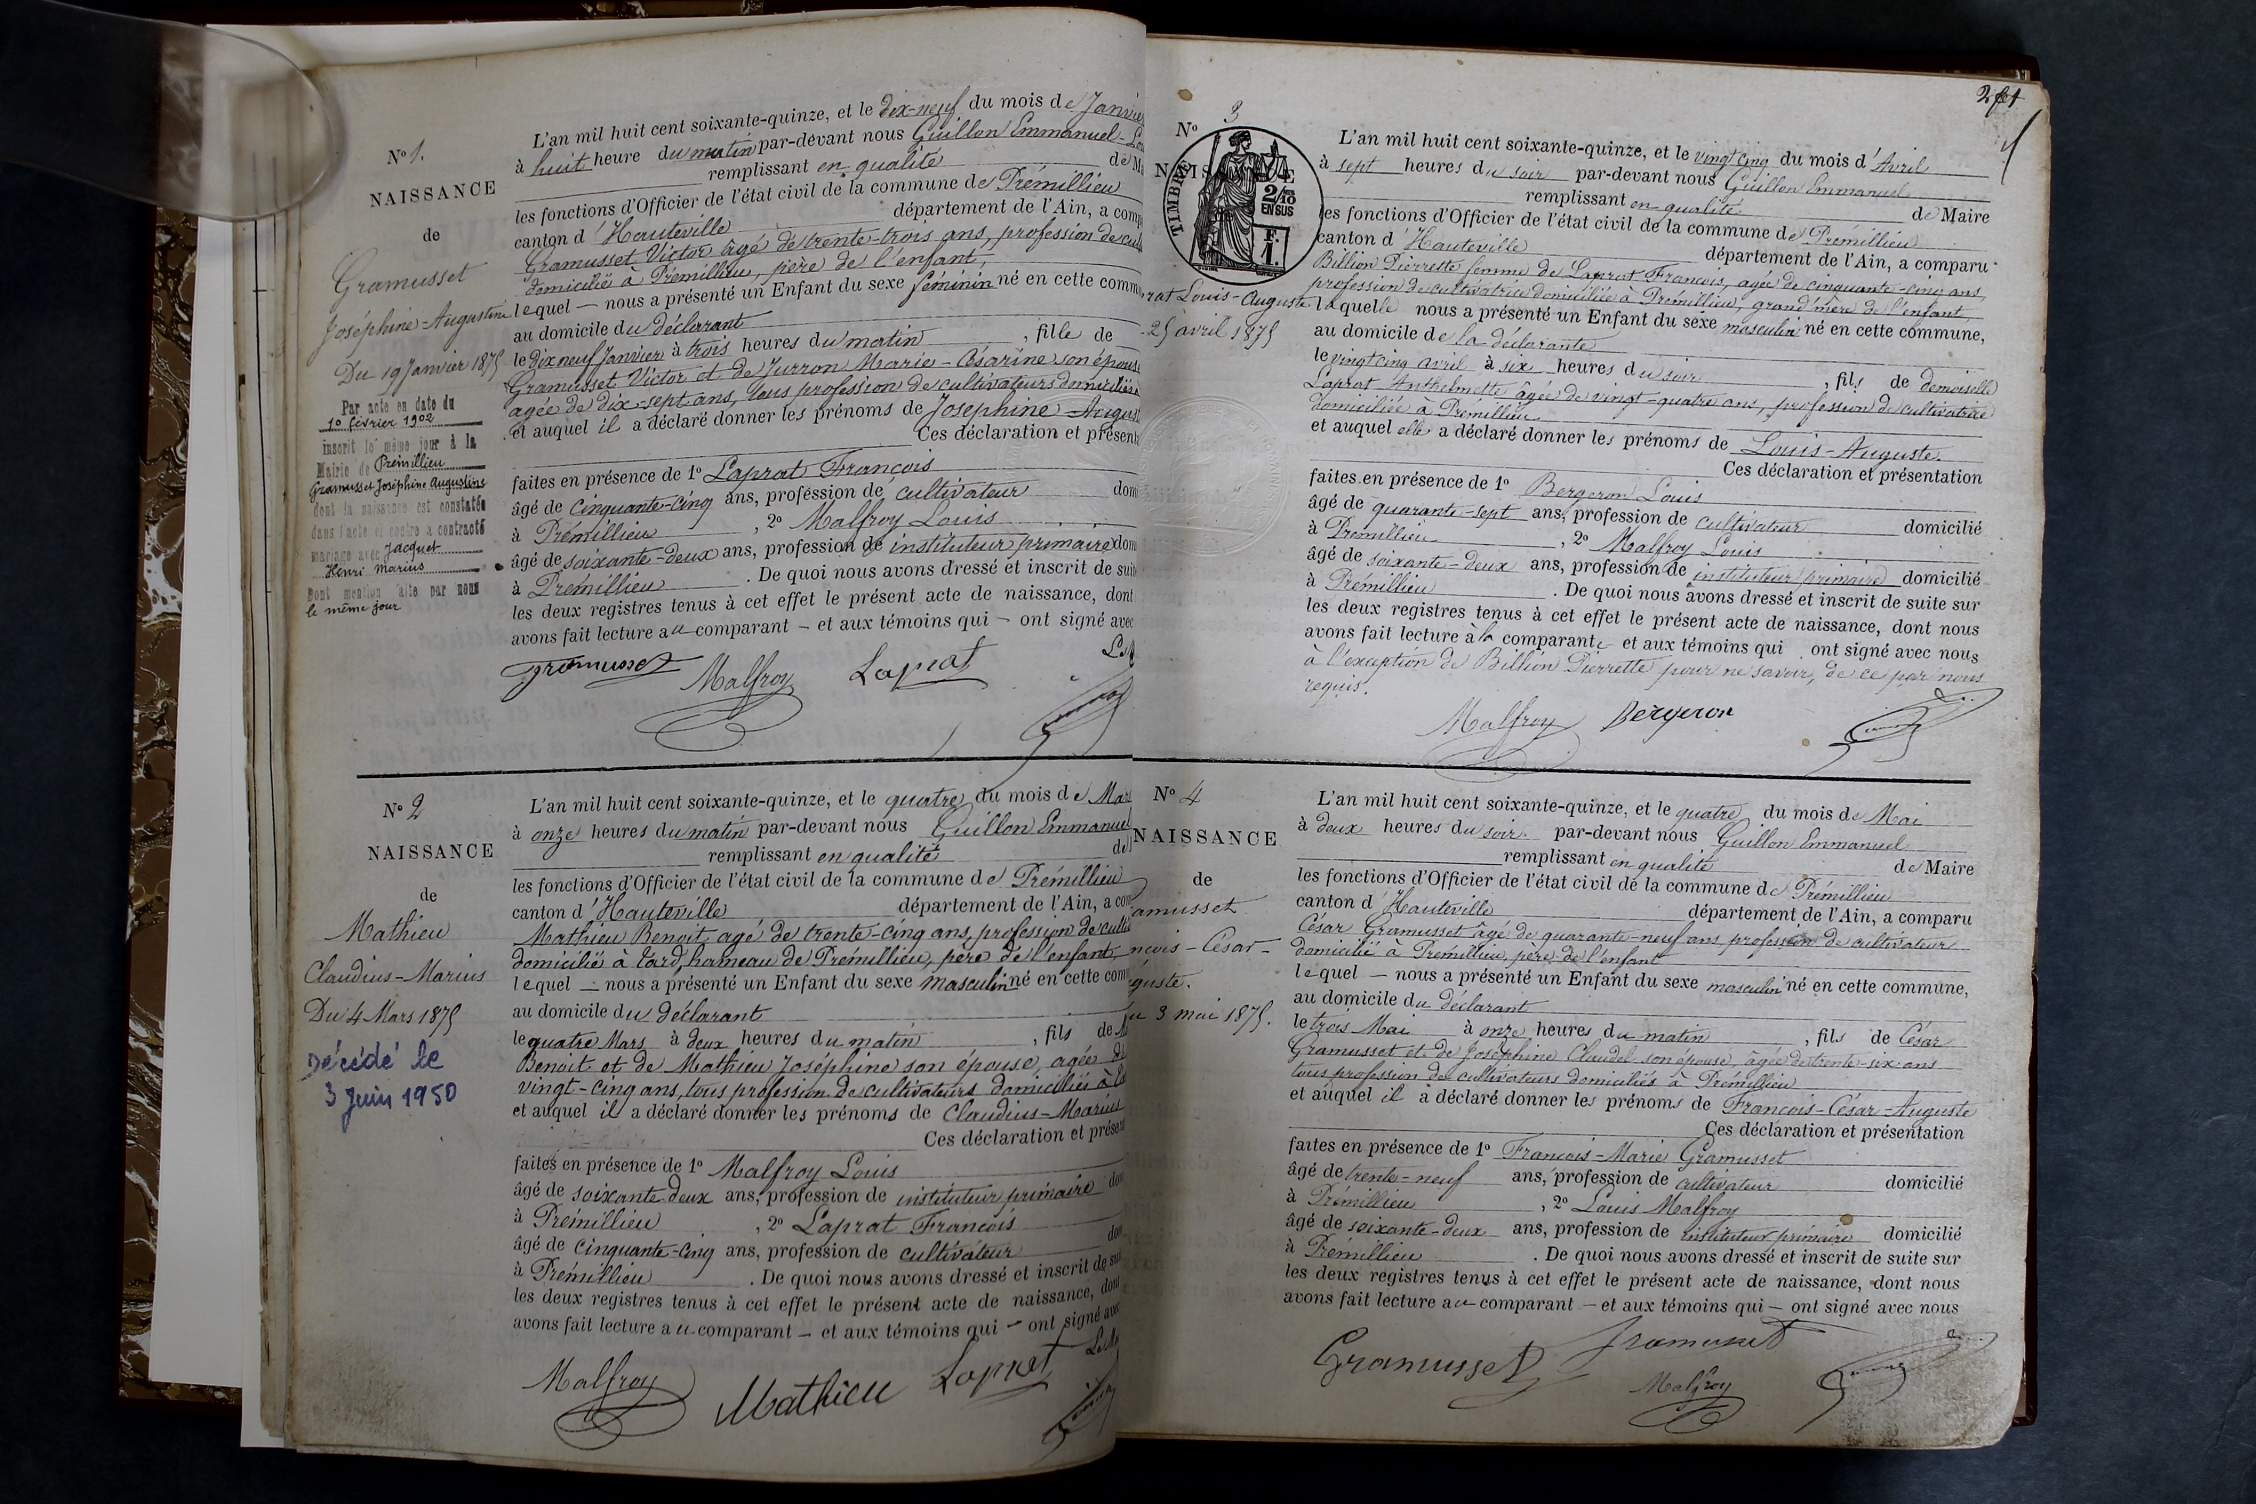 N° 1.
NAISSANCE
de
Gramusset
Joséphine-Augustine
Du 19 Janvier 1875
Par acte en date du
10 février 1902
inscrit le même jour à la
Mairie de Prémillieu
Gramusset Joséphine Augustine
dont la naissance est constatée
dans l'acte ci contre a contracté
mariage avec Jacquet
Henri Marius
Dont mention faite par nous
le même jour
L'an mil huit cent soixante-quinze, et le dix-neuf du mois de Janvier
à huit heure du matin par-devant nous Guillon Emmanuel-
remplissant en qualité de
les fonctions d'Officier de l'état civil de la commune de Prémillieu
canton d'Hauteville département de l'Ain, a
Gramusset Victor âgé de trente-trois ans, profession de
domicilié à Prémillieu, père de l'enfant,
lequel — nous a présenté un Enfant du sexe féminin né en cette
au domicile du déclarant
le dix neuf Janvier à trois heures du matin, fille de
Gramusset Victor et de Jurron Marie-Césarine son épouse
agée de dix-sept ans, tous profession de cultivateurs domiciliés
et auquel il a déclaré donner les prénoms de Joséphine-
Ces déclaration et
faites en présence de 1° Laprat François
âgé de cinquante-cinq ans, profession de cultivateur
à Prémillieu, 2° Malfroy Louis
âgé de soixante-deux ans, profession de instituteur primaire
à Prémillieu. De quoi nous avons dressé et inscrit de
les deux registres tenus à cet effet le présent acte de naissance, dont
avons fait lecture au comparant — et aux témoins qui — ont signé avec
Gramusset Malfroy Laprat
N° 2
NAISSANCE
de
Mathieu
Claudius-Marius
Du 4 Mars 1875
Décédé le
3 Juin 1950
L'an mil huit cent soixante-quinze, et le quatre du mois de
à onze heures du matin par-devant nous Guillon Emmanuel
remplissant en qualité
les fonctions d'Officier de l'état civil de la commune de Prémillieu
canton d'Hauteville département de l'Ain, a
Mathieu Benoit agé de trente-cinq ans, profession de
domicilié à Lard, hameau de Prémillieu, père de l'enfant,
lequel — nous a présenté un Enfant du sexe masculin né en cette
au domicile du déclarant
le quatre Mars à deux heures du matin, fils de
Benoit et de Mathieu Joséphine son épouse, agée de
vingt-cinq ans, tous profession de cultivateurs domiciliés à
et auquel il a déclaré donner les prénoms de Claudius-Marius
Ces déclaration et
faites en présence de 1° Malfroy Louis
âgé de soixante-deux ans, profession de instituteur primaire
à Prémillieu, 2° Laprat François
âgé de cinquante-cinq ans, profession de cultivateur
à Prémillieu. De quoi nous avons dressé et inscrit de
les deux registres tenus à cet effet le présent acte de naissance,
avons fait lecture au comparant — et aux témoins qui — ont signé
Malfroy Mathieu Laprat
N° 3
TIMBRE
2/10
EN SUS
F.
1.
rat Louis-Auguste
25 avril 1875
L'an mil huit cent soixante-quinze, et le vingt cinq du mois d'Avril
à sept heures du soir par-devant nous Guillon Emmanuel
remplissant en qualité de Maire
les fonctions d'Officier de l'état civil de la commune de Prémillieu
canton d'Hauteville département de l'Ain, a comparu
Billion Pierrette femme de Laprat François, agée de cinquante-cinq ans,
profession de cultivatrice domiciliée à Prémillieu, grand'mère de l'enfant
laquelle nous a présenté un Enfant du sexe masculin né en cette commune,
au domicile de la déclarante
le vingt cinq avril à six heures du soir, fils de demoiselle
Laprat Anthelmette âgée de vingt-quatre ans, profession de cultivatrice
domiciliée à Prémillieu
et auquel elle a déclaré donner les prénoms de Louis-Auguste.
Ces déclaration et présentation
faites en présence de 1° Bergeron Louis
âgé de quarante-sept ans, profession de cultivateur domicilié
à Prémillieu, 2° Malfroy Louis
âgé de soixante-deux ans, profession de instituteur primaire domicilié
à Prémillieu. De quoi nous avons dressé et inscrit de suite sur
les deux registres tenus à cet effet le présent acte de naissance, dont nous
avons fait lecture à la comparante et aux témoins qui ont signé avec nous
à l'exception de Billion Pierrette pour ne savoir, de ce par nous
requis.
Malfroy Bergeron
N° 4
NAISSANCE
de
amusset
ncois-César-
guste.
u 3 mai 1875.
L'an mil huit cent soixante-quinze, et le quatre du mois de Mai
à deux heures du soir par-devant nous Guillon Emmanuel
remplissant en qualité de Maire
les fonctions d'Officier de l'état civil de la commune de Prémillieu
canton d'Hauteville département de l'Ain, a comparu
César Gramusset âgé de quarante-neuf ans profession de cultivateur
domicilié à Prémillieu, père de l'enfant
lequel — nous a présenté un Enfant du sexe masculin né en cette commune,
au domicile du déclarant
le trois Mai à onze heures du matin, fils de César
Gramusset et de Joséphine Claudel son épouse, âgée de trente-six ans
tous profession de cultivateurs domiciliés à Prémillieu
et auquel il a déclaré donner les prénoms de François-César-Auguste
Ces déclaration et présentation
faites en présence de 1° François-Marie Gramusset
âgé de trente-neuf ans, profession de cultivateur domicilié
à Prémillieu, 2° Louis Malfroy
âgé de soixante-deux ans, profession de instituteur primaire domicilié
à Prémillieu. De quoi nous avons dressé et inscrit de suite sur
les deux registres tenus à cet effet le présent acte de naissance, dont nous
avons fait lecture au comparant — et aux témoins qui — ont signé avec nous
Gramusset Gramusset
Malfroy